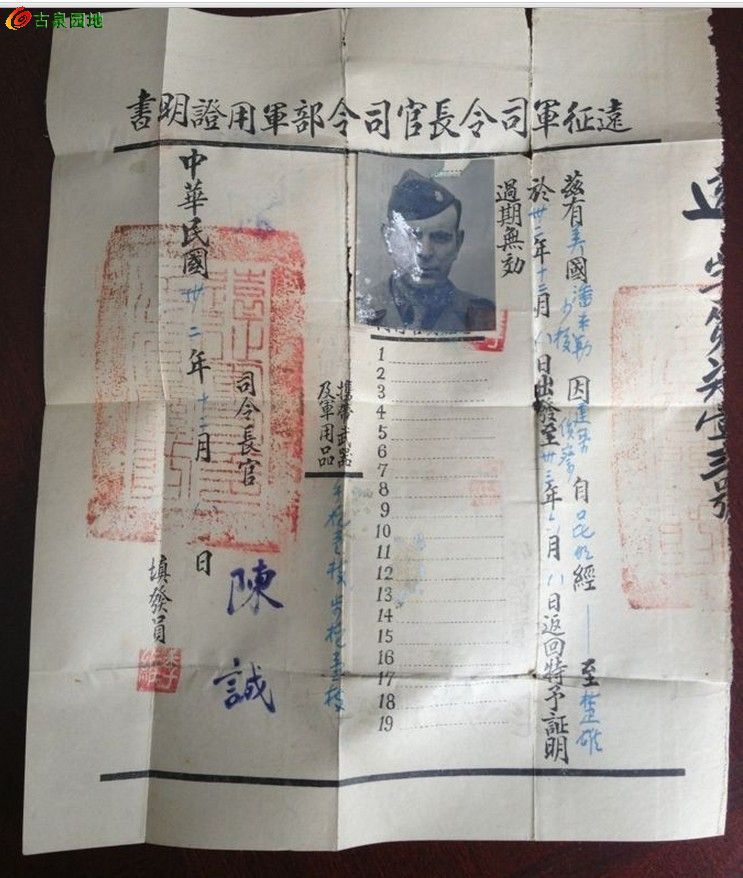 古泉园地
遠征軍司令長官司令部軍用證明書
茲有美國潘木勒少校因建築偵察自昆明經——至楚雄
於卅二年十二月八日出發至卅三年 月八日返回特予証明
過期無効
1
2
3
4
5
6
7
8
9
10
11
12
13
14
15
16
17
18
19
携帶武器及軍用品
手槍壹枝 步槍壹枝
司令長官 陳誠
中華民國卅二年十二月八日
填發員